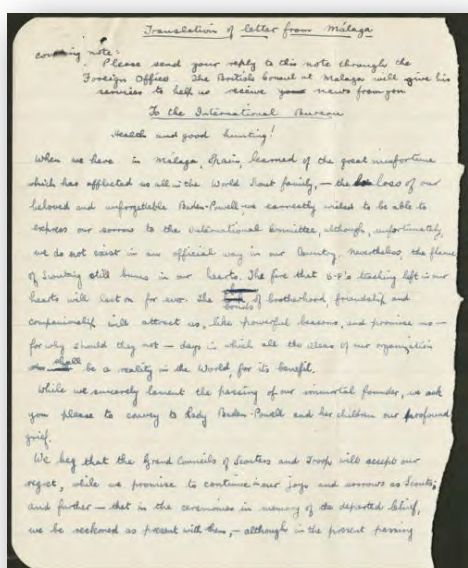 Translation of letter from Málaga
covering note:
Please send your reply to this note through the
Foreign Office. The British Consul at Malaga will give his
services to help us receive your news from you
To the International Bureau
Health and good hunting!
When we here in Málaga, Spain, learned of the great misfortune
which has afflicted us all in the World Scout family, — the loss of our
beloved and unforgettable Baden-Powell, we earnestly wished to be able to
express our sorrow to the International Committee, although, unfortunately,
we do not exist in an official way in our Country. Nevertheless, the flame
of Scouting still burns in our hearts. The fire that B-P's teaching left in our
hearts will last on for ever. The bonds of brotherhood, friendship and
companionship will attract us, like powerful beacons, and promise us —
for why should they not — days in which all the ideas of our organization
shall be a reality in the World, for its benefit.
While we sincerely lament the passing of our immortal founder, we ask
you please to convey to Lady Baden-Powell and her children our profound
grief.
We beg that the Grand Councils of Scouters and Troop will accept our
regret, while we promise to continue in our joys and sorrows as Scouts;
and further — that in the ceremonies in memory of the departed Chief,
we be reckoned as present with them, — although in the present passing